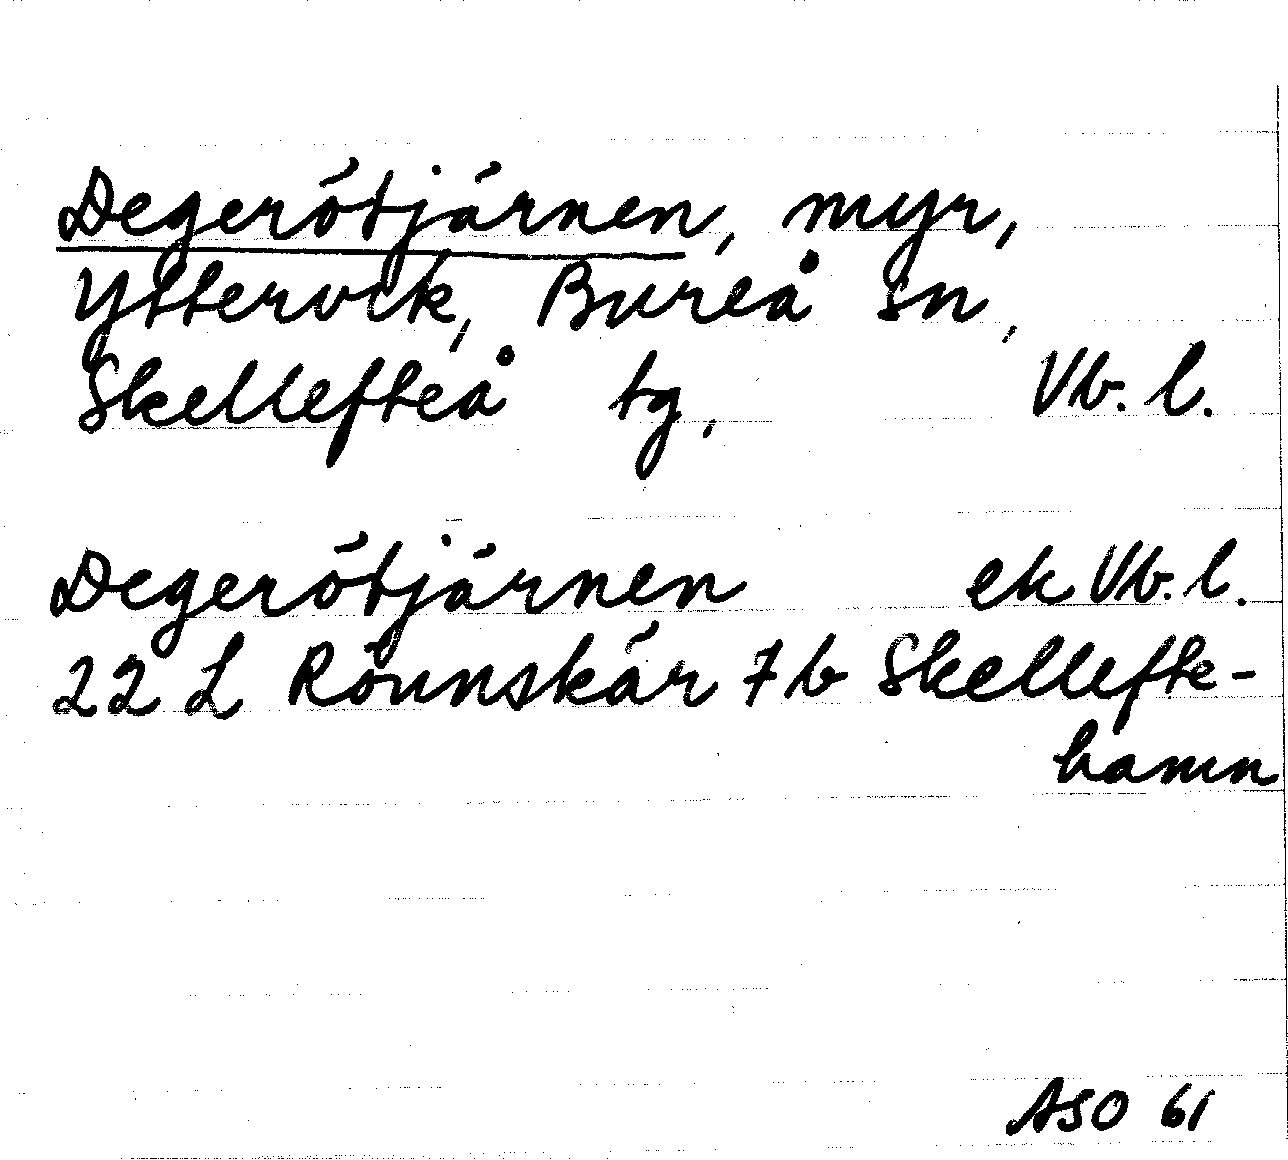 Degerötjärnen, myr,
Yttervik, Bureå sn,
Skellefteå tg, Vb. l.
Degerötjärnen ek Vb. l.
22 L Rönnskär 7 b Skellefte-
hamn
ASO 61